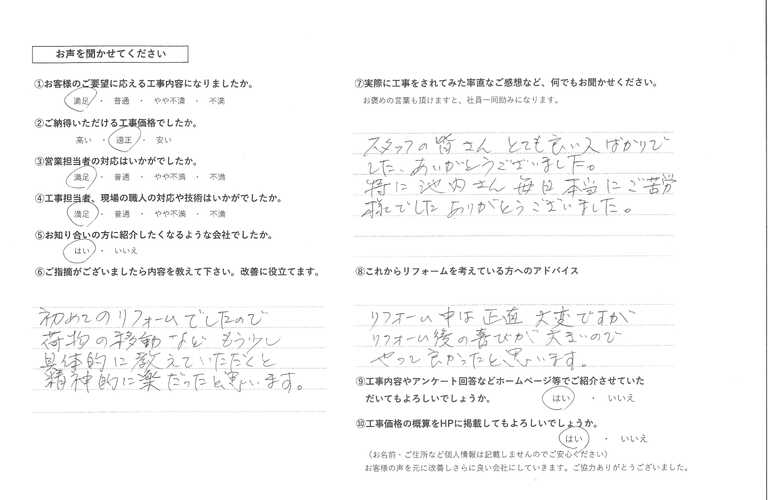 お声を聞かせてください
①お客様のご要望に応える工事内容になりましたか。
満足 ・ 普通 ・ やや不満 ・ 不満
②ご納得いただける工事価格でしたか。
高い ・ 適正 ・ 安い
③営業担当者の対応はいかがでしたか。
満足 ・ 普通 ・ やや不満 ・ 不満
④工事担当者、現場の職人の対応や技術はいかがでしたか。
満足 ・ 普通 ・ やや不満 ・ 不満
⑤お知り合いの方に紹介したくなるような会社でしたか。
はい ・ いいえ
⑥ご指摘がございましたら内容を教えて下さい。改善に役立てます。
初めてのリフォームでしたので
荷物の移動など もう少し
具体的に教えていただくと
精神的に楽だったと思います。
⑦実際に工事をされてみた率直なご感想など、何でもお聞かせください。
お褒めの言葉も頂けますと、社員一同励みになります。
スタッフの皆さん とても良い人ばかりで
した、ありがとうございました。
特に池内さん 毎日本当にご苦労
様でした ありがとうございました。
⑧これからリフォームを考えている方へのアドバイス
リフォーム中は正直 大変ですが
リフォーム後の喜びが大きいので
やって良かったと思います。
⑨工事内容やアンケート回答などホームページ等でご紹介させていた
だいてもよろしいでしょうか。 はい ・ いいえ
⑩工事価格の概算をHPに掲載してもよろしいでしょうか。
はい ・ いいえ
（お名前・ご住所など個人情報は記載しませんのでご安心ください）
お客様の声を元に改善しさらに良い会社にしていきます。ご協力ありがとうございました。